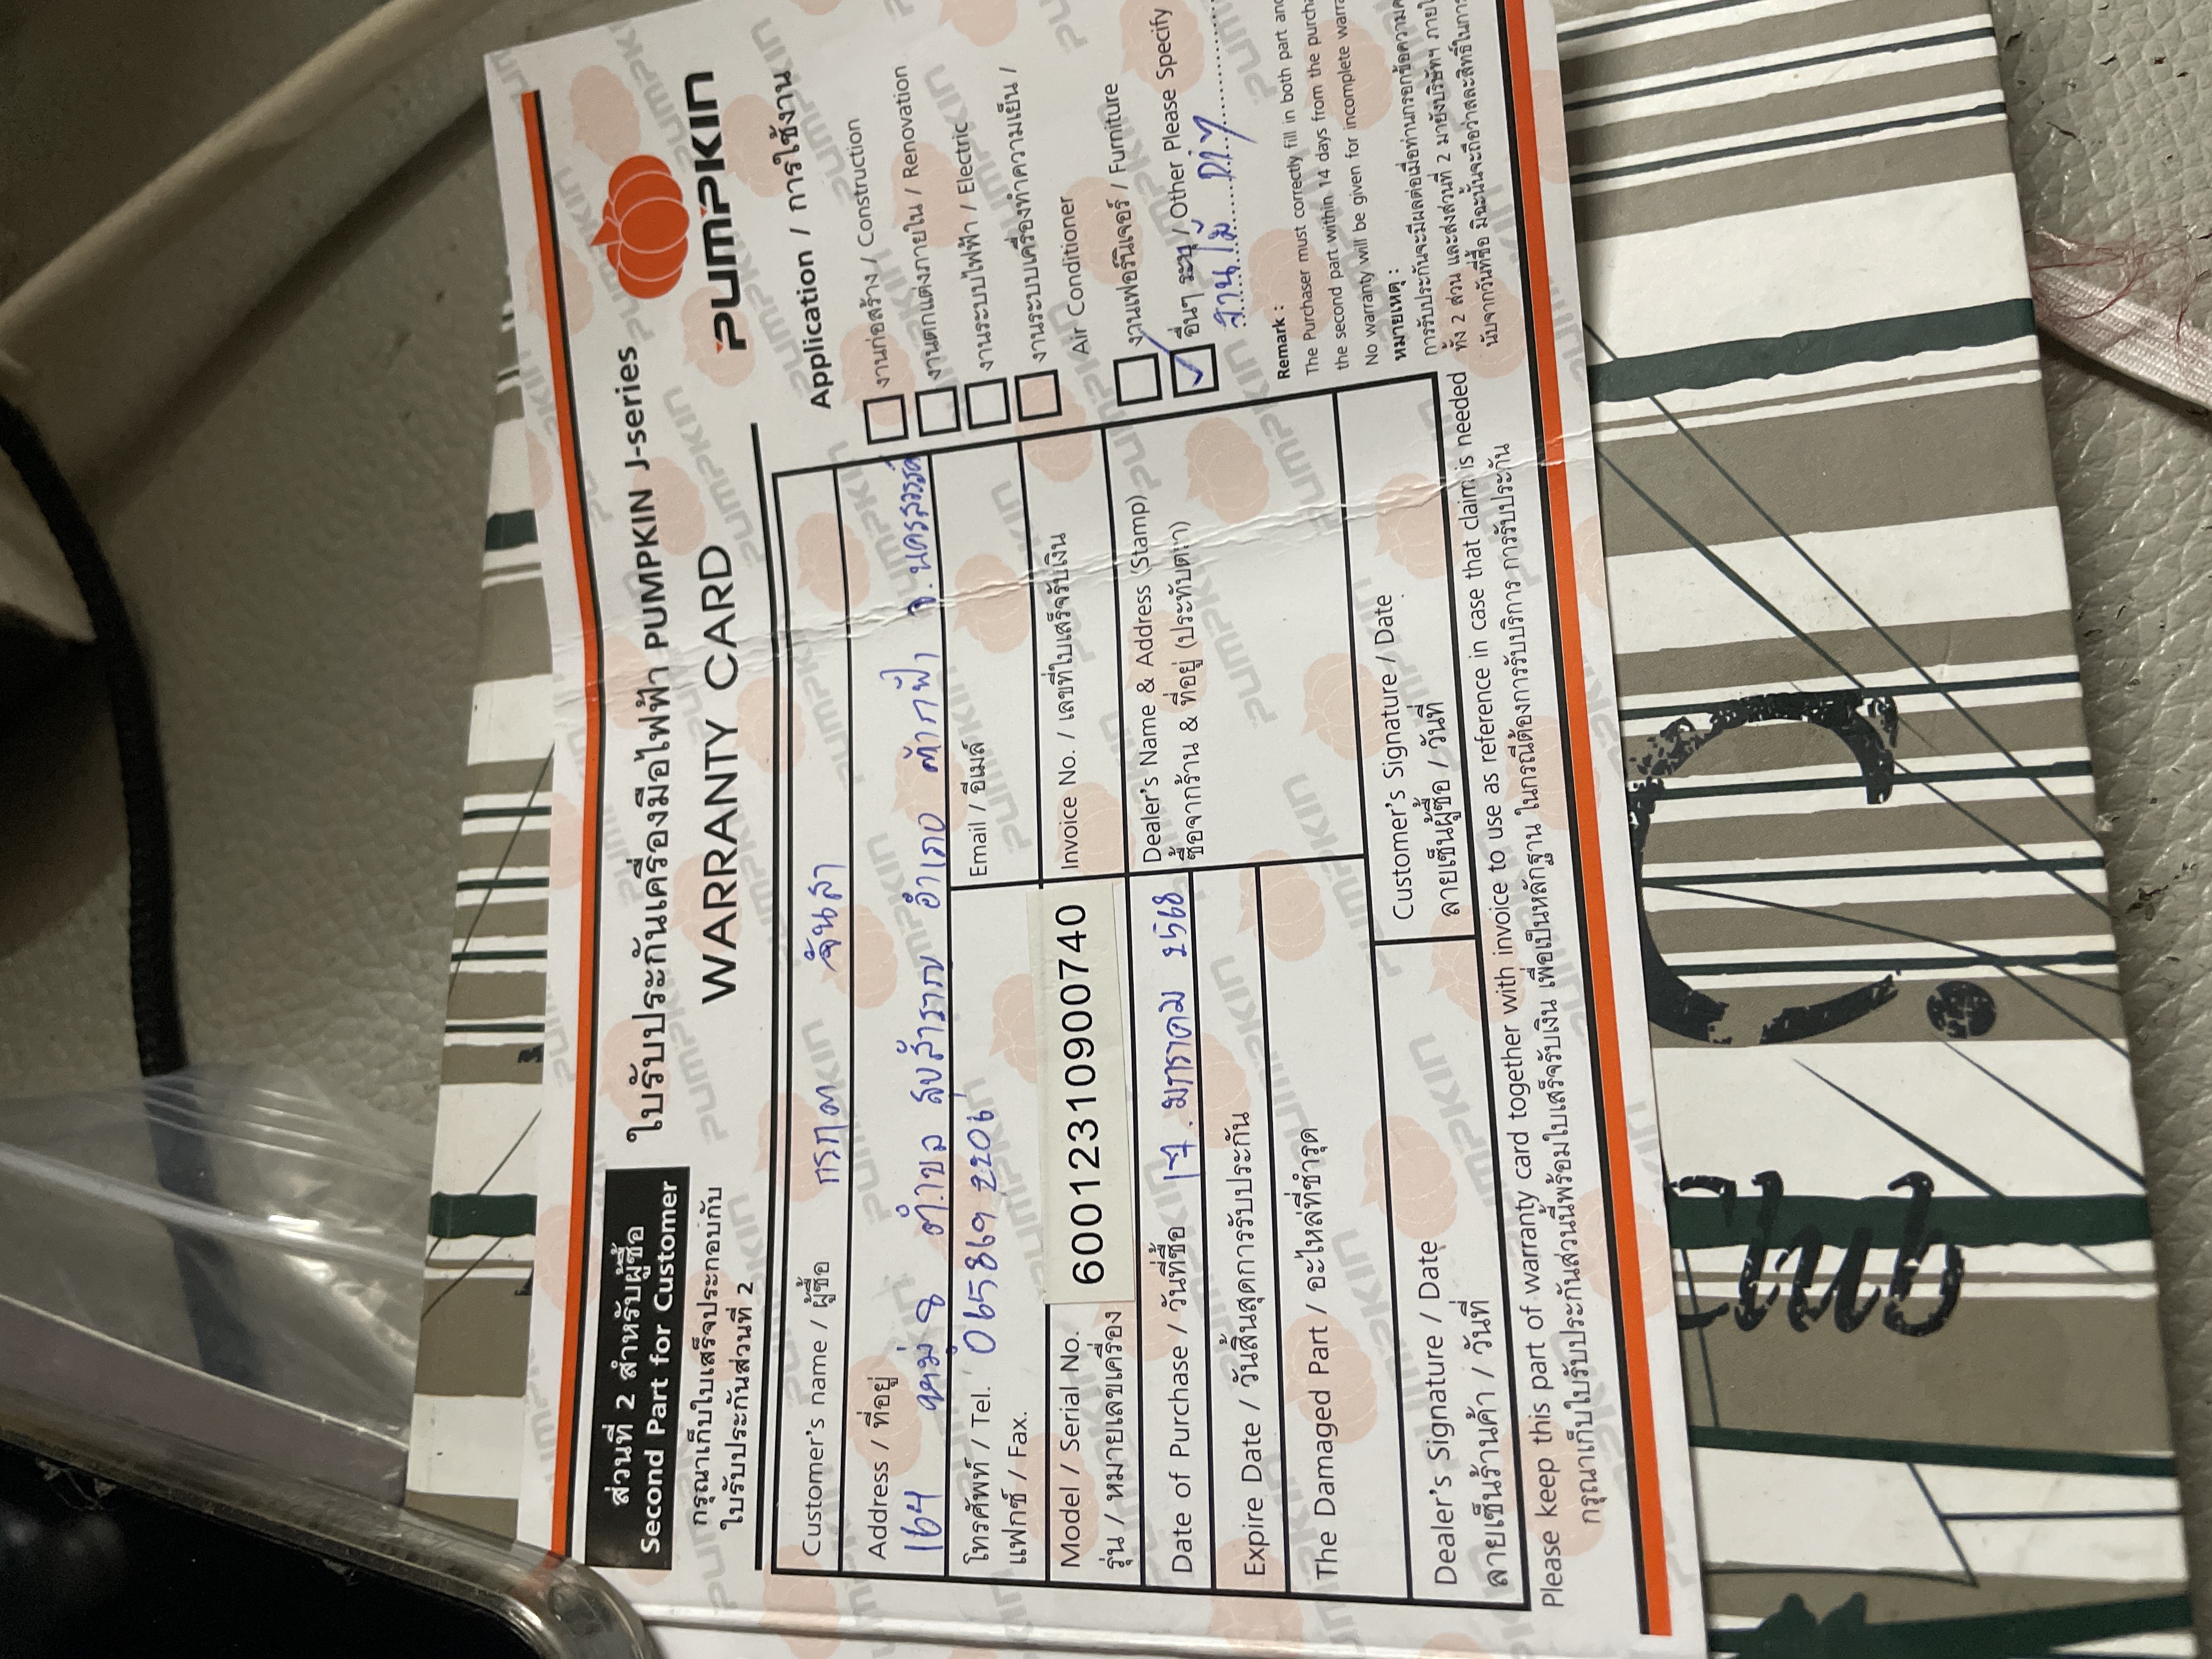 ส่วนที่ 2 สำหรับผู้ซื้อ
Second Part for Customer
กรุณาเก็บใบเสร็จประกอบกับ
ใบรับประกันส่วนที่ 2
ใบรับประกันเครื่องมือไฟฟ้า PUMPKIN J-series
WARRANTY CARD
PUMPKIN
Customer's name / ผู้ซื้อ กรกต จันลา
Address / ที่อยู่
164 หมู่ 8 ตำบล สุขสำราญ อำเภอ ตากฟ้า จ. นครสวรรค์
โทรศัพท์ / Tel. 065 869 2206
แฟกซ์ / Fax.
Email / อีเมล์
Model / Serial No.
รุ่น / หมายเลขเครื่อง
6001231090000740
Invoice No. / เลขที่ใบเสร็จรับเงิน
Date of Purchase / วันที่ซื้อ มกราคม 2568
Dealer's Name & Address (Stamp)
ซื้อจากร้าน & ที่อยู่ (ประทับตรา)
Expire Date / วันสิ้นสุดการรับประกัน
The Damaged Part / อะไหล่ที่ชำรุด
Dealer's Signature / Date
ลายเซ็นร้านค้า / วันที่
Customer's Signature / Date
ลายเซ็นผู้ซื้อ / วันที่
Application / การใช้งาน
งานก่อสร้าง / Construction
งานตกแต่งภายใน / Renovation
งานระบบไฟฟ้า / Electric
งานระบบเครื่องทำความเย็น /
Air Conditioner
งานเฟอร์นิเจอร์ / Furniture
อื่นๆ ระบุ / Other Please Specify
งานไม้ DIY
Remark :
The Purchaser must correctly fill in both part and
the second part within 14 days from the purcha
No warranty will be given for incomplete warra
หมายเหตุ :
การรับประกันจะมีผลต่อเมื่อท่านกรอกข้อความ
ทั้ง 2 ส่วน และส่งส่วนที่ 2 มายังบริษัทฯ ภายใ
นับจากวันที่ซื้อ มิฉะนั้นจะถือว่าสละสิทธิ์ในกา
Please keep this part of warranty card together with invoice to use as reference in case that claim is needed
กรุณาเก็บใบรับประกันส่วนนี้พร้อมใบเสร็จรับเงิน เพื่อเป็นหลักฐาน ในกรณีต้องการรับบริการ การรับประกัน